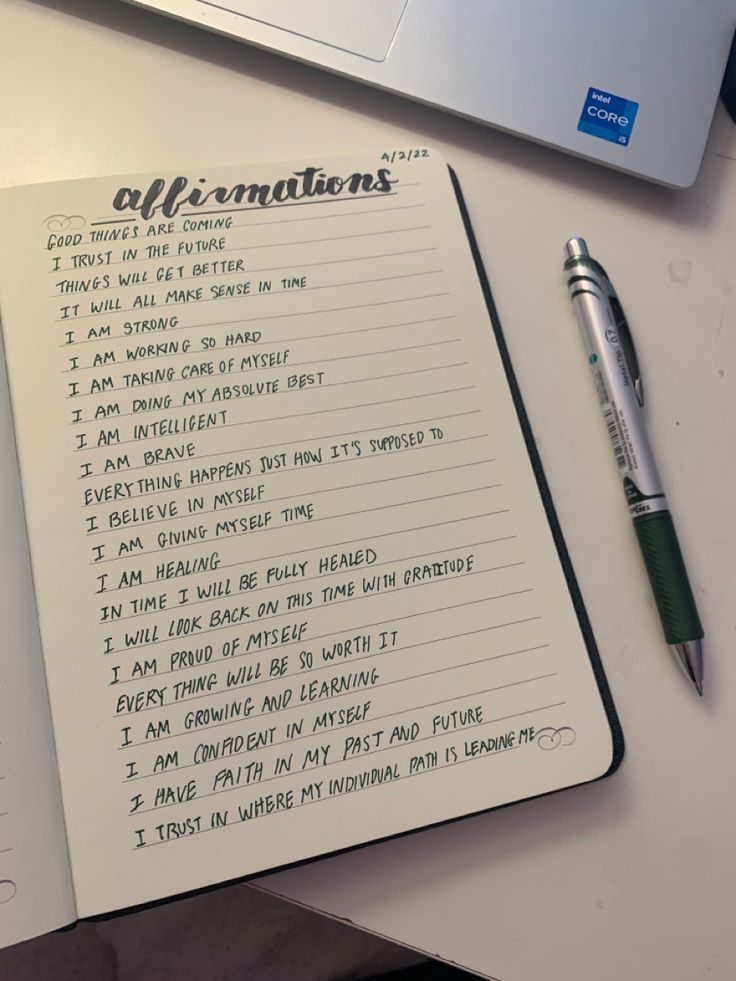 intel
CORE
i5
4/2/22
affirmations
GOOD THINGS ARE COMING
I TRUST IN THE FUTURE
THINGS WILL GET BETTER
IT WILL ALL MAKE SENSE IN TIME
I AM STRONG
I AM WORKING SO HARD
I AM TAKING CARE OF MYSELF
I AM DOING MY ABSOLUTE BEST
I AM INTELLIGENT
I AM BRAVE
EVERYTHING HAPPENS JUST HOW IT'S SUPPOSED TO
I BELIEVE IN MYSELF
I AM GIVING MYSELF TIME
I AM HEALING
IN TIME I WILL BE FULLY HEALED
I WILL LOOK BACK ON THIS TIME WITH GRATITUDE
I AM PROUD OF MYSELF
EVERYTHING WILL BE SO WORTH IT
I AM GROWING AND LEARNING
I AM CONFIDENT IN MYSELF
I HAVE FAITH IN MY PAST AND FUTURE
I TRUST IN WHERE MY INDIVIDUAL PATH IS LEADING ME
0.7
Metal Tip